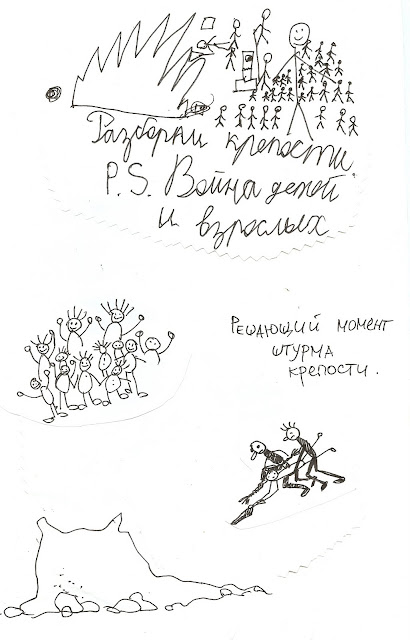 Разборки крепости
P.S. Война детей
и взрослых
Решающий момент
штурма
крепости.